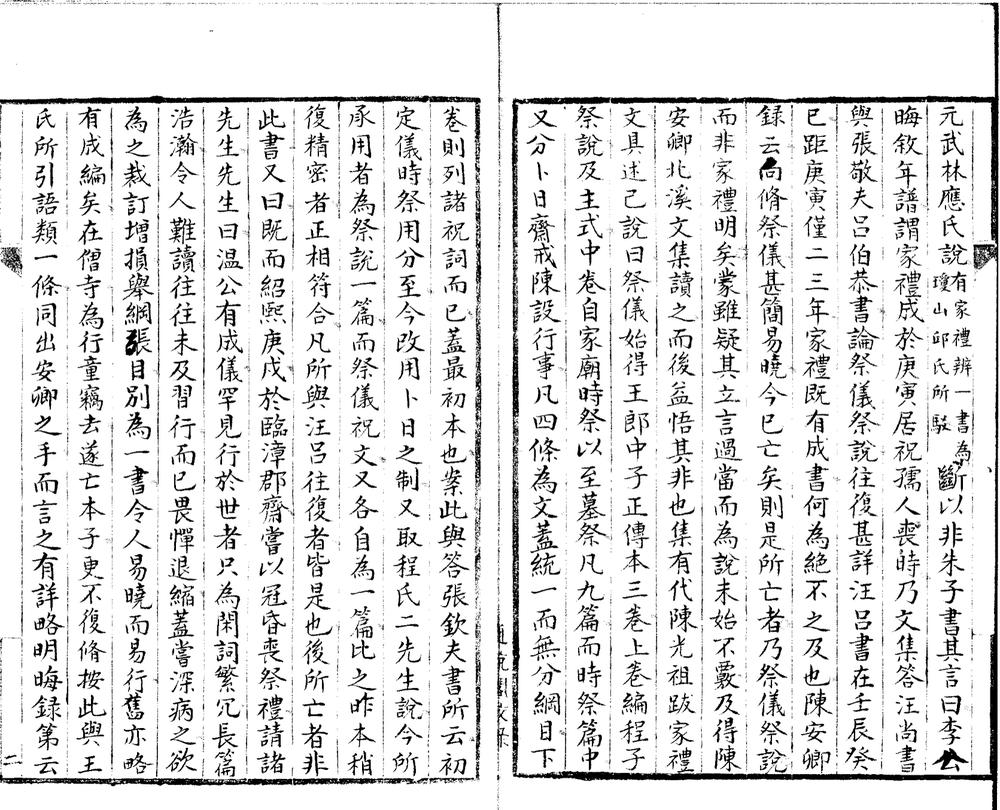 元武林應氏說有家禮辨一書為瓊山邱氏所駁斷以非朱子書其言曰李公
晦敘年譜謂家禮成於庚寅居祝孺人喪時乃文集答汪尚書
與張敬夫呂伯恭書論祭儀祭說往復甚詳汪呂書在壬辰癸
巳距庚寅僅二三年家禮既有成書何為絕不之及也陳安卿
錄云向脩祭儀甚簡易曉今已亡矣則是所亡者乃祭儀祭說
而非家禮明矣蒙雖疑其立言過當而為說未始不覈及得陳
安卿北溪文集讀之而後益悟其非也集有代陳光祖跋家禮
文具述己說曰祭儀始得王郎中子正傳本三卷上卷編程子
祭說及主式中卷自家廟時祭以至墓祭凡九篇而時祭篇中
又分卜日齋戒陳設行事凡四條為文蓋統一而無分綱目下
卷則列諸祝詞而已蓋最初本也案此與答張欽夫書所云初
定儀時祭用分至今改用卜日之制又取程氏二先生說今所
承用者為祭說一篇而祭儀祝文又各自為一篇比之昨本稍
復精密者正相符合凡所與汪呂往復者皆是也後所亡者非
此書又曰既而紹熙庚戌於臨漳郡齋嘗以冠昏喪祭禮請諸
先生先生曰溫公有成儀罕見行於世者只為閑詞繁冗長篇
浩瀚令人難讀往往未及習行而已畏憚退縮蓋嘗深病之欲
為之裁訂增損舉綱張目別為一書令人易曉而易行舊亦略
有成編矣在僧寺為行童竊去遂亡本子更不復脩按此與王
氏所引語類一條同出安卿之手而言之有詳略明晦錄第云
二